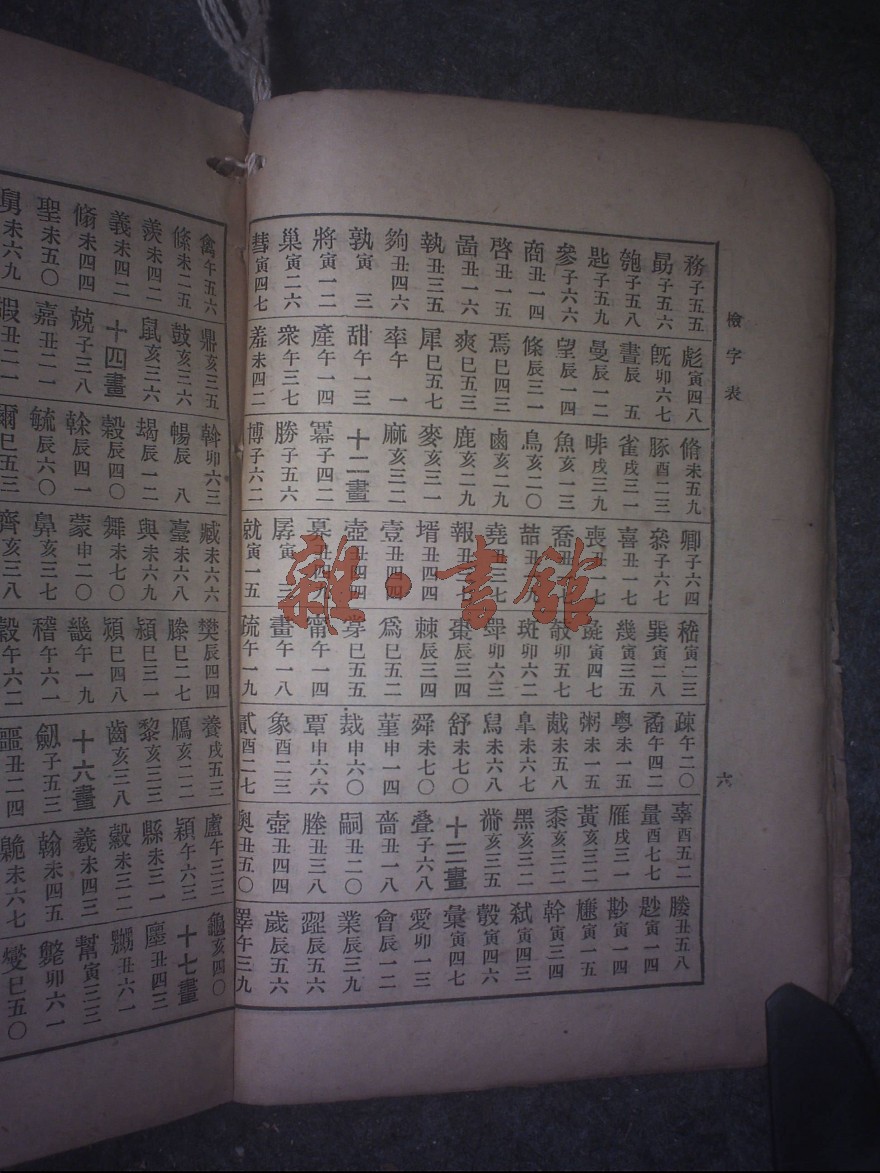 檢字表
六
務子五五
勗子五六
匏子五八
匙子五九
參子六六
商丑一四
啓丑一五
啚丑一六
執丑三五
夠丑四六
孰寅三
將寅一二
巢寅二六
彗寅四七
彪寅四八
旣卯六七
晝辰五
曼辰一二
望辰一四
條辰三一
焉巳四三
爽巳五三
犀巳五七
率午一
甜午一三
產午一四
衆午三七
羞未四二
脩未五九
豚酉二三
雀戌三一
啡戌三九
魚亥一三
鳥亥二〇
鹵亥二九
鹿亥二九
麥亥三一
麻亥三二
十二畫
冪子四二
勝子五六
博子六二
卿子六四
喜丑一七
喪丑一七
喬丑一七
喆丑一九
堯丑三七
報丑三七
壻丑四四
壹丑四四
壺丑四四
孱寅三
就寅一五
嵇寅二三
巽寅二八
幾寅三五
斑卯六二
棘辰三四
棗辰三四
爲巳五二
甯午一四
畫午一八
疏午一九
疎午二〇
矞午四二
粵未一五
粥未一五
胾未五八
皐未六七
舄未六八
舒未七〇
舜未七〇
菫申一四
裁申六〇
覃申六六
象酉二三
貳酉二七
辜酉五二
量酉七七
雁戌三一
黃亥三二
黍亥三二
黑亥三二
黹亥三五
十三畫
疊子六八
嗇丑一八
嗣丑二〇
塍丑三八
壺丑四四
奧丑五〇
媵丑五八
尟寅一四
尠寅一四
尲寅一五
幹寅三四
弒寅四三
彀寅四六
彙寅四七
愛卯一三
會辰一二
業辰三九
歲辰五六
睪午三九
禽午五六
絛未二五
羨未四二
義未四二
脩未四四
聖未五〇
舅未六九
鼎亥三五
鼓亥三六
鼠亥三六
十四畫
兢子三八
嘉丑二一
嘏丑二一
斡卯六三
暢辰八
朅辰一二
榖辰四〇
榦辰四一
毓辰六〇
爾巳五三
臧未六六
臺未六八
與未六九
舞未七〇
蒙申二〇
鼻亥三七
齊亥三八
樊辰四四
滕巳二七
潁巳三一
熲巳四八
畿午一九
稽午六一
穀午六二
養戌五三
鴈亥二二
黎亥三三
齒亥三八
十六畫
劒子五三
嘔丑二四
盧午三三
穎午六三
縣未三一
縠未三二
羲未四三
翰未四五
龜亥四〇
十七畫
幫寅三三
斃卯六一
燮巳五〇
雜·書館